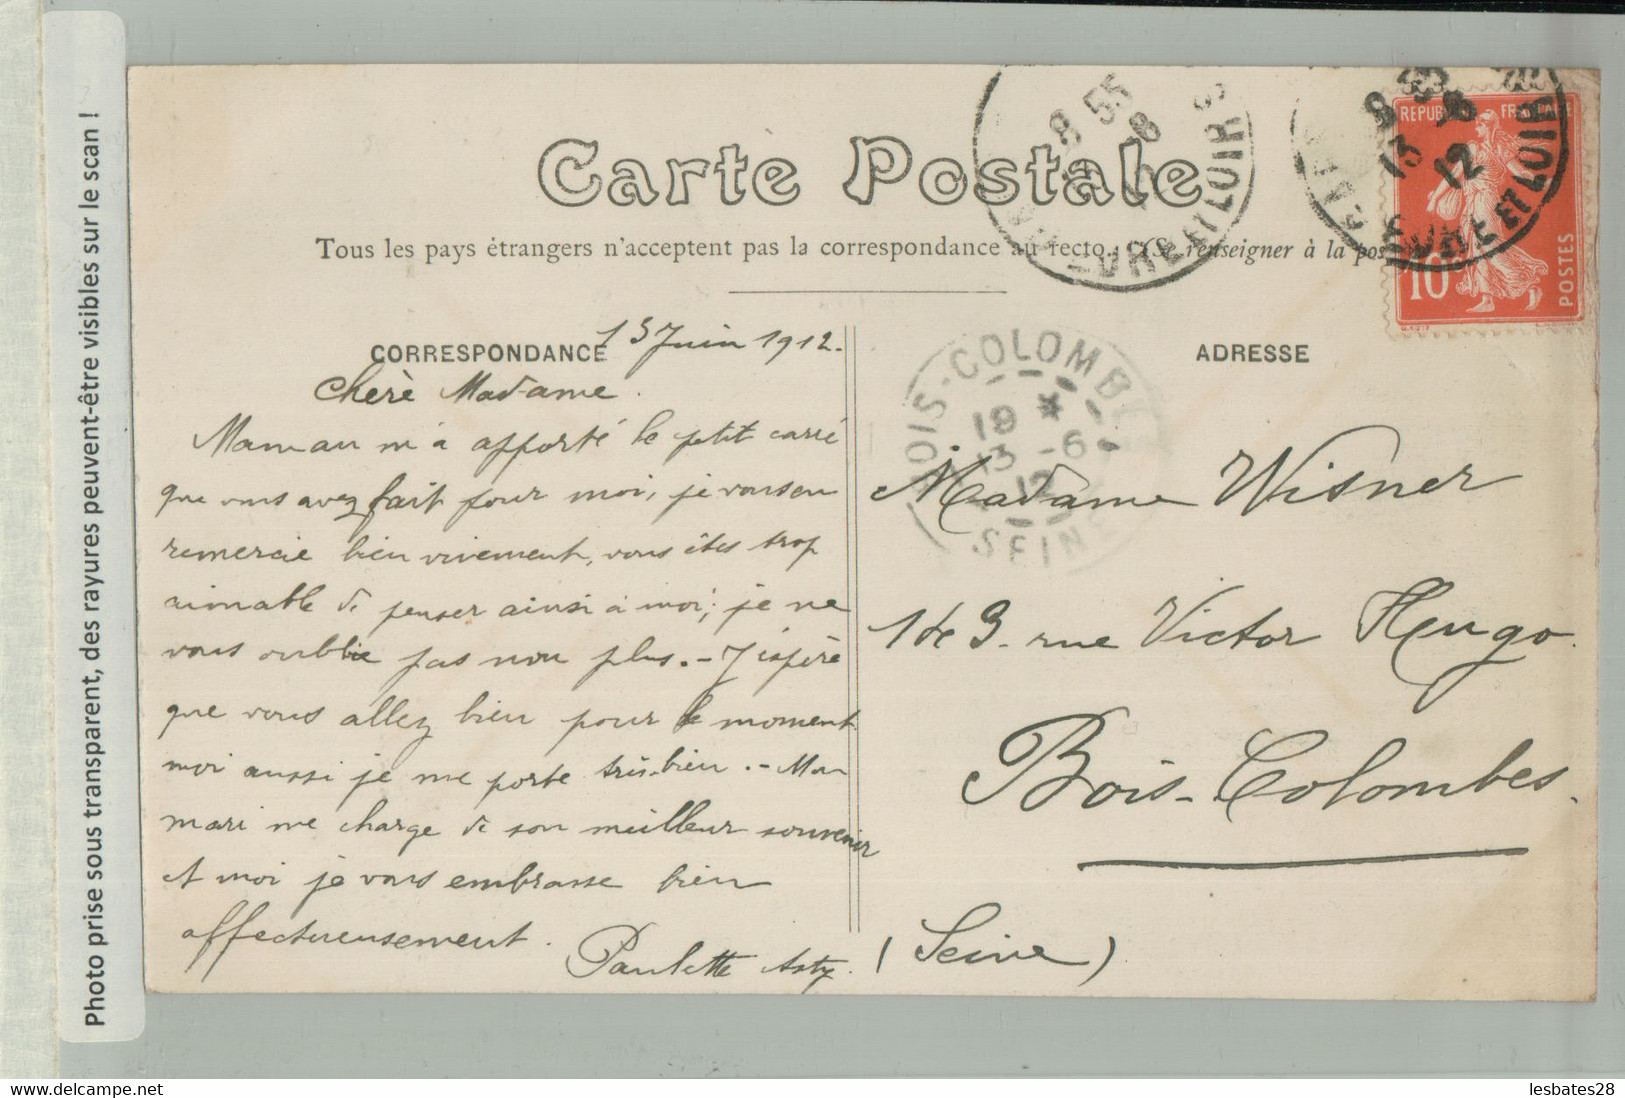 Photo prise sous transparent, des rayures peuvent-être visibles sur le scan !
Carte Postale
Tous les pays étrangers n'acceptent pas la correspondance au recto. (Se renseigner à la pos
RÉPUB FRANÇAISE
10
POSTES
8 55
8
EURE ET LOIR
8 55
13 6
12
EURE ET LOIR
BOIS-COLOMBES
19 * 1
13 -6
12
SEINE
CORRESPONDANCE
ADRESSE
13 Juin 1912.
Chère Madame.
Maman m'a apporté le petit carré
que vous avez fait pour moi, je vous en
remercie bien vivement, vous êtes trop
aimable de penser ainsi à moi; je ne
vous oublie pas non plus. - J'espère
que vous allez bien pour le moment
moi aussi je me porte très-bien. - Mon
mari me charge de son meilleur souvenir
et moi je vous embrasse bien
affectueusement.
Paulette
Madame Wisner
rue Victor Hugo.
Bois-Colombes.
(Seine)
lesbates28